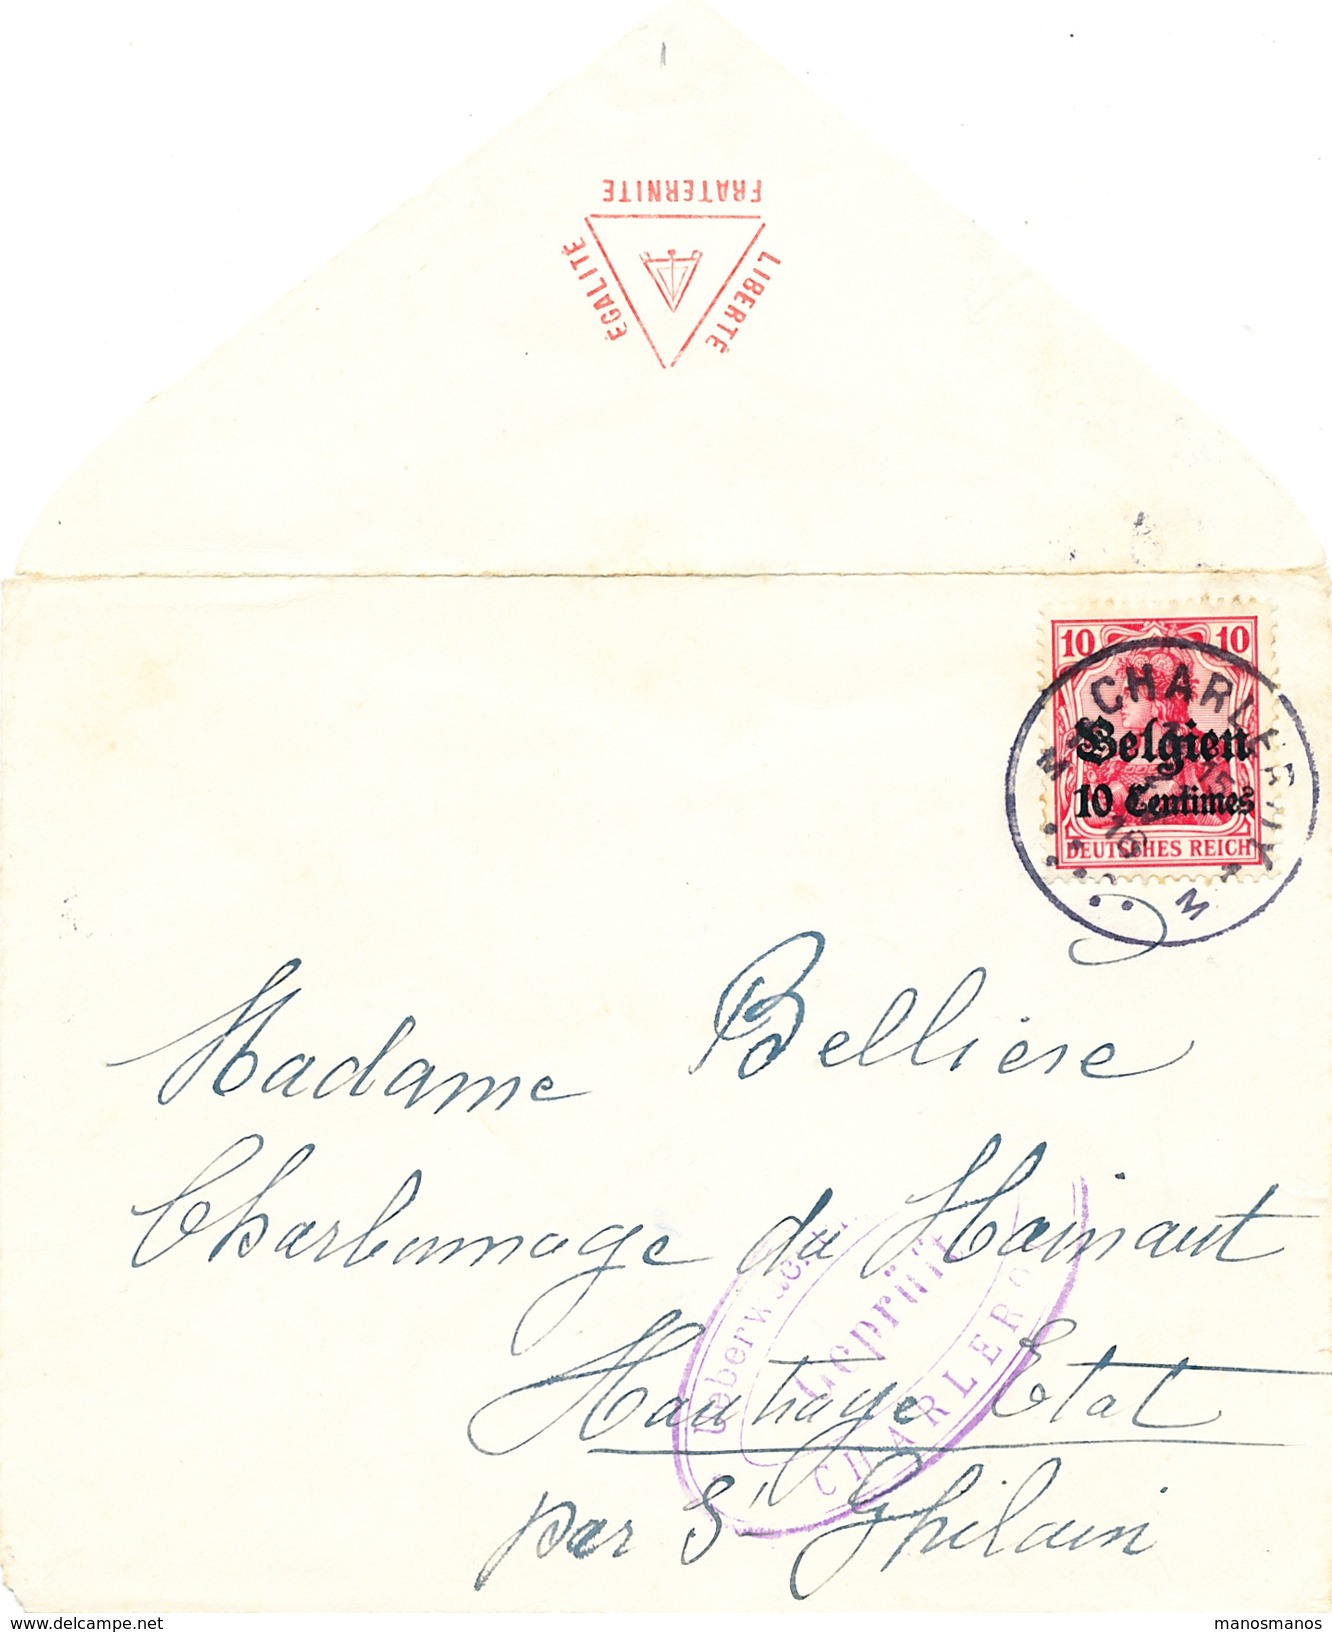 FRATERNITE
ÉGALITÉ
LIBERTÉ
10 10
Belgien
10 Centimes
DEUTSCHES REICH
CHARLEROY
16
Madame Bellière
Charbonnage du Hainaut
Hautrage Etat
par St Ghilain
Geprüft
CHARLERO
www.delcampe.net
manosmanos